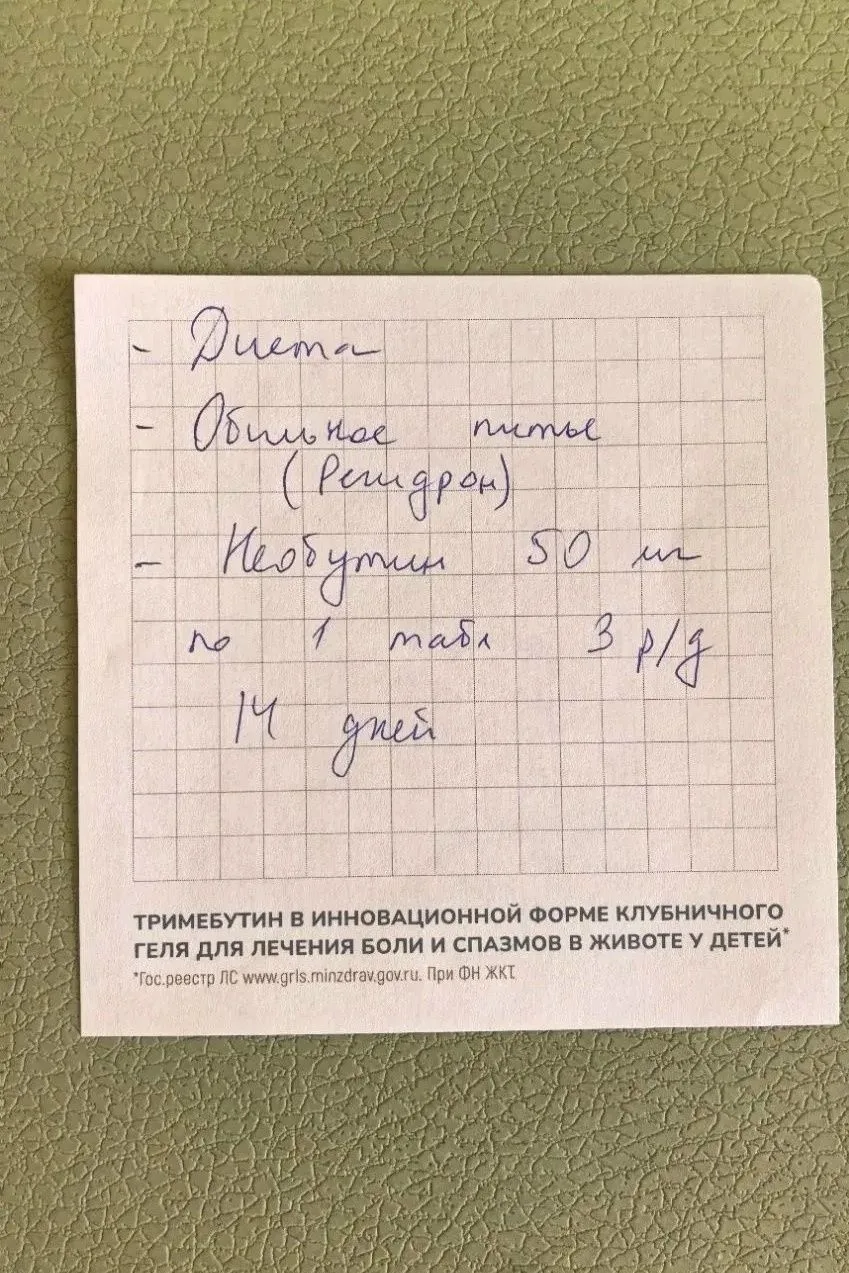 - Диета
- Обильное питье
(Регидрон)
- Необутин 50 мг
по 1 табл 3 р/д
14 дней
ТРИМЕБУТИН В ИННОВАЦИОННОЙ ФОРМЕ КЛУБНИЧНОГО
ГЕЛЯ ДЛЯ ЛЕЧЕНИЯ БОЛИ И СПАЗМОВ В ЖИВОТЕ У ДЕТЕЙ*
*Гос.реестр ЛС www.grls.minzdrav.gov.ru. При ФН ЖКТ.